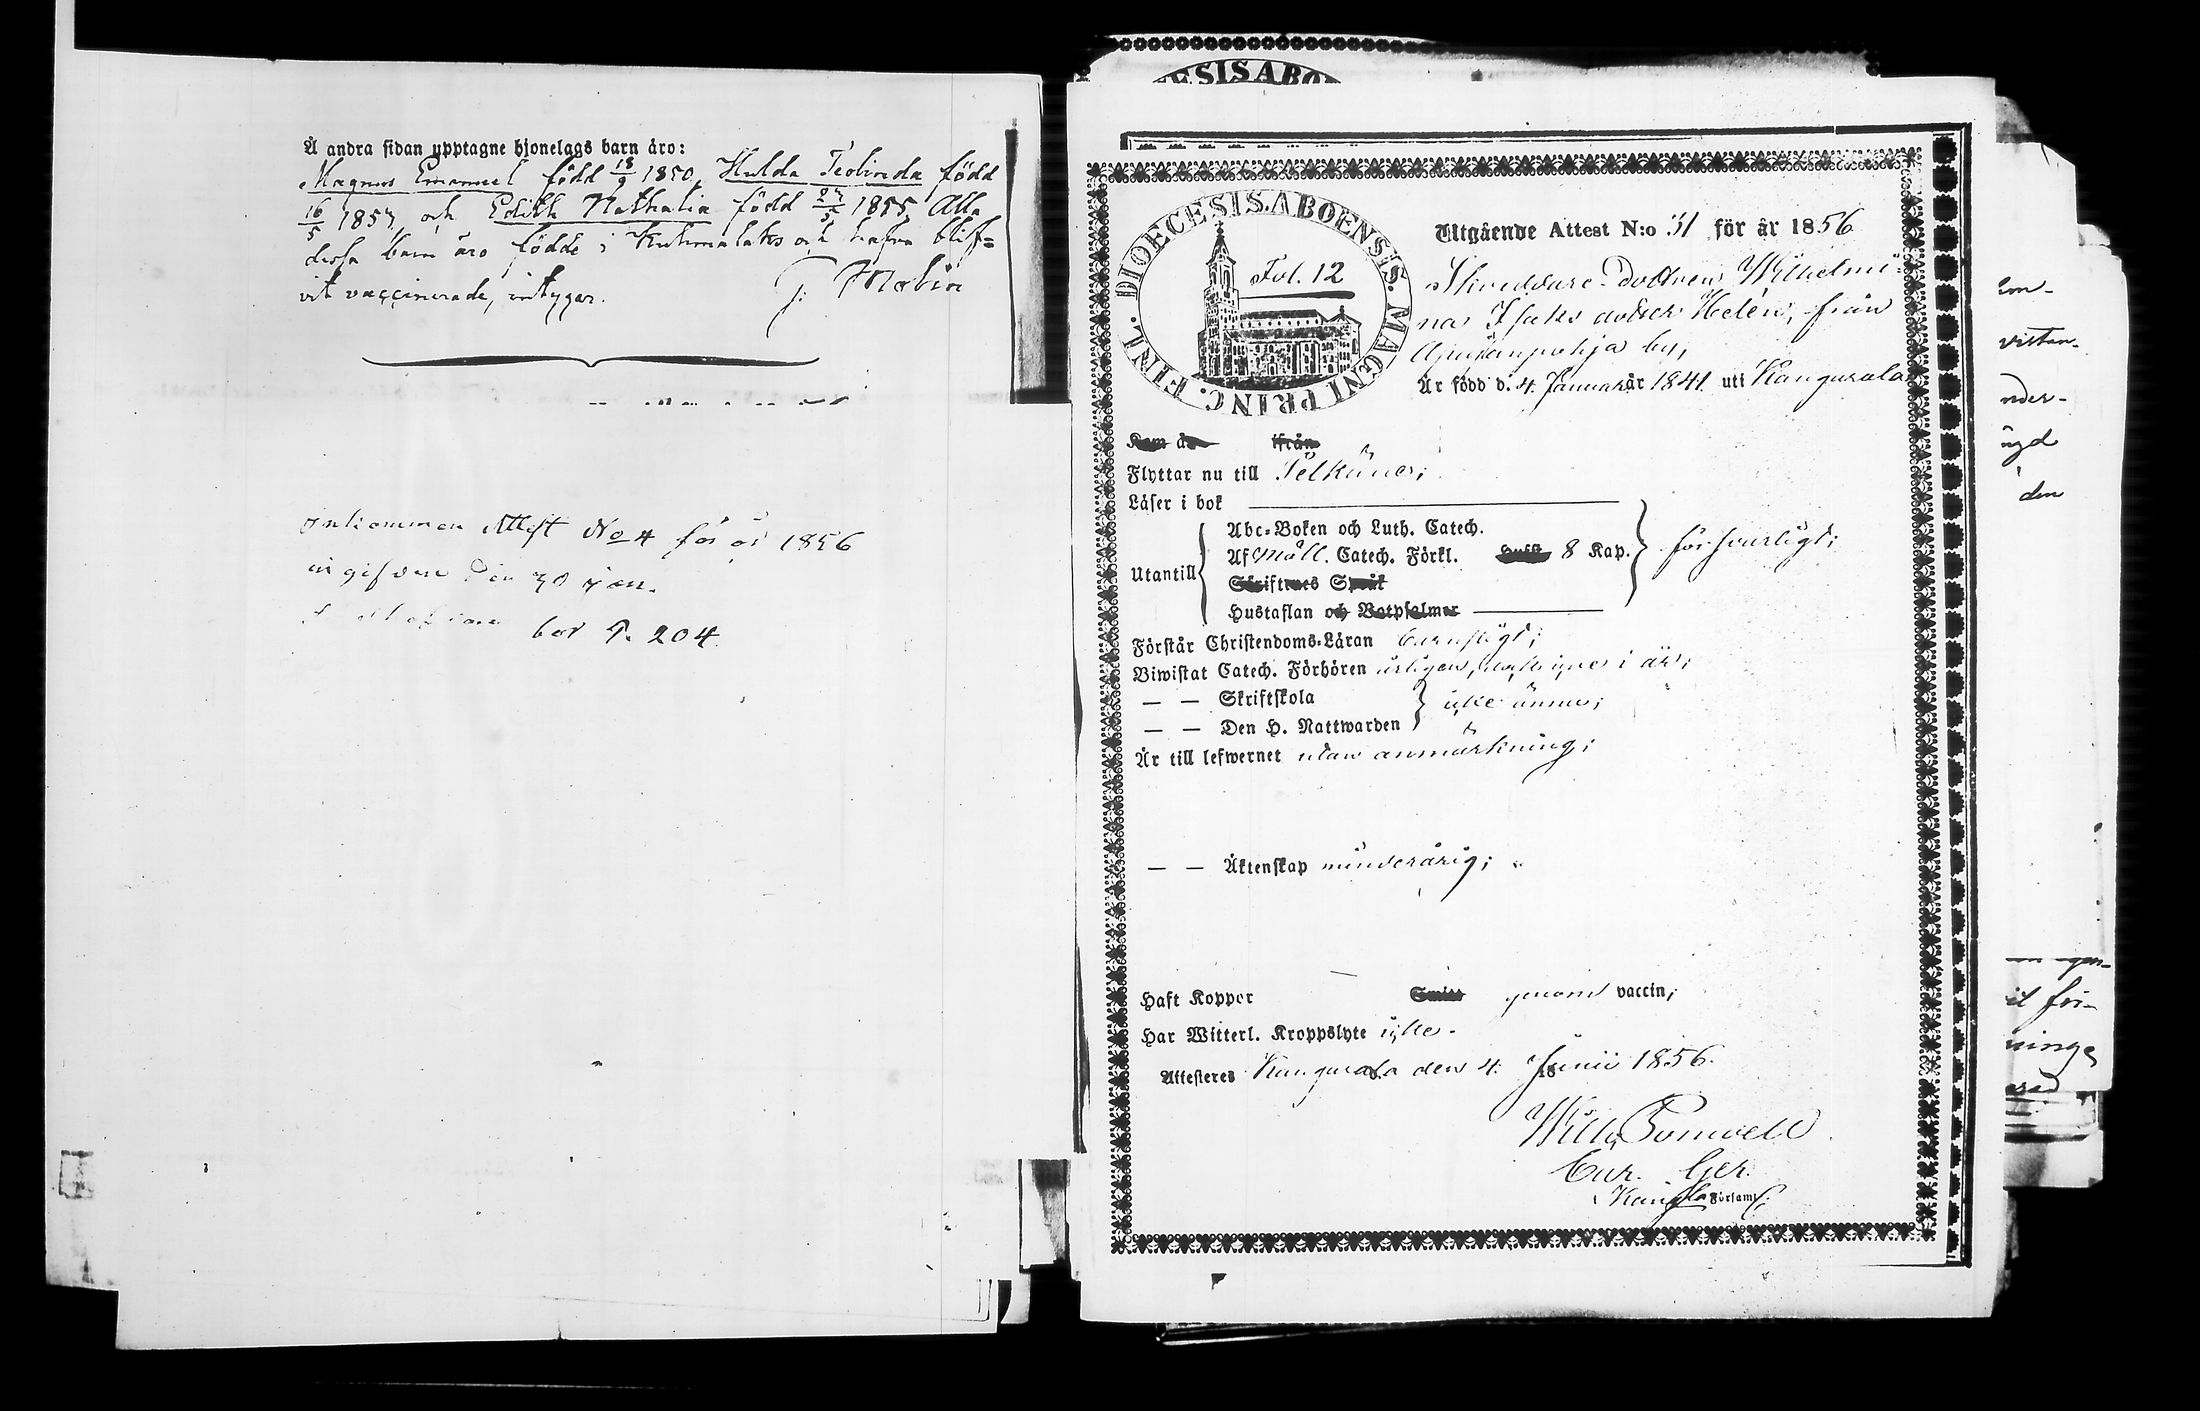 Å andra sidan upptagne hjonelags barn äro:
Magnus Emanuel född 18/9 1850, Hulda Teolinda född
16/5 1853, och Edith Nathalia född 27/5 1855. Alla
dessa barn äro födde i Kuhmalaks och hafva blif=
vit vaccinerade, intygar.
Inkommen Attest No 4 för år 1856
ingifven den 30 Jan.
bor P. 204
ESIS ABO
DIOECESIS. ABOENSIS. MAGNI PRINC. FINL.
Fol. 12
Utgående Attest N:o 31 för år 1856
Skreddare-Dottren Wilhelmi=
na Isaks dotter Helén, från
by,
Är född d. 4 Januari år 1841. uti Kangasala
Kom år ifrån
Flyttar nu till Pelkäne;
Läser i bok
Utantill
Abc=Boken och Luth. Catech.
Af Möll. Catech. Förkl. 8 Kap.
försvarligt;
Skriftenes Språk
Hustaflan och Botpsalmer
Förstår Christendoms=Läran barnsligt;
Biwistat Catech. Förhören årligen, i år;
— — Skriftskola
icke ännu;
— — Den H. Nattwarden
Är till lefwernet utan anmärkning;
— — Äktenskap minderårig;
Haft Koppor genom vaccin;
Har Witterl. Kroppslyte icke.
Attesteres Kangasala den 4. Junii 1856.
Cur. Ger.
Församl.
vistan-
nder-
den